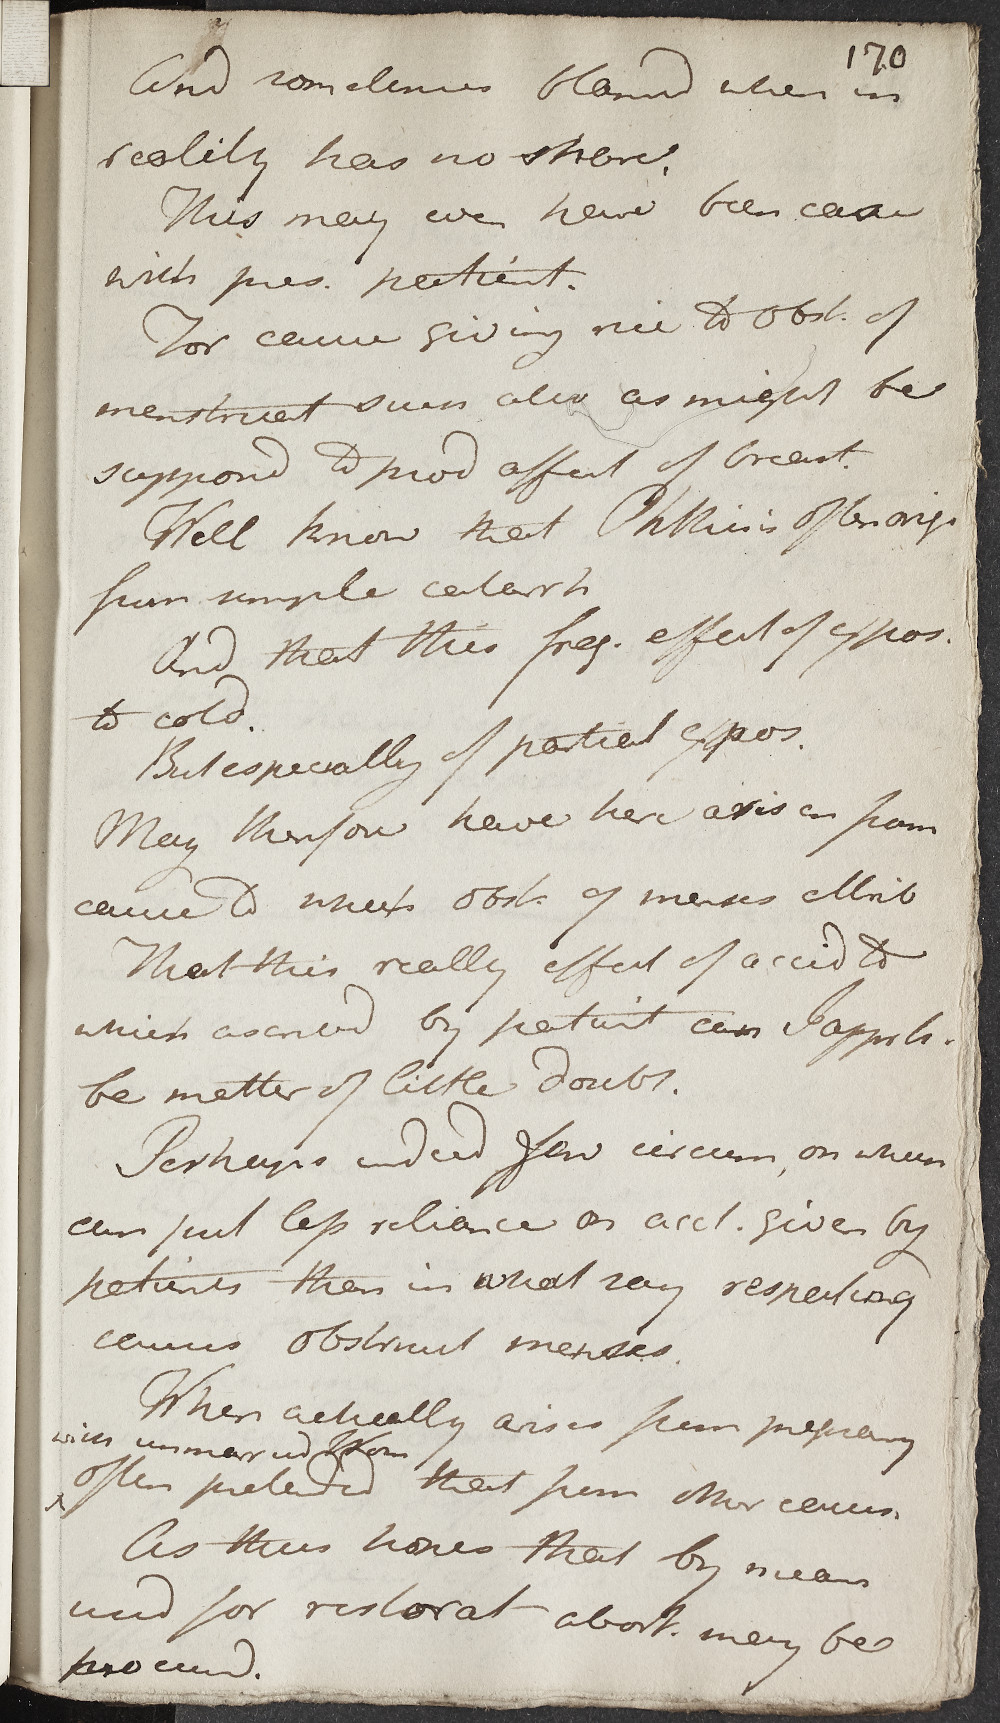 170
And sometimes blamed when in
reality has no share.
This may even have been case
with pres. patient.
For cause giving rise to Obst. of
menstruat such also as might be
supposed to prod affect of breast.
Well know that Phthisis often orig.
from simple catarrh
And that this freq. effect of expos.
to cold.
But especially of partial expos.
May therefore have here arisen from
cause to which obst. of menses attrib
That this really effect of accid to
which ascribed by patient can I appreh.
be matter of little doubt.
Perhaps indeed few circum. on which
can put less reliance on acct. given by
patients than in what say respecting
causes obstruct menses.
When actually arises from pregnancy
with unmarried Wom
^ often pretended that from other causes.
As thus hopes that by means
used for restorat abort. may be
procured.